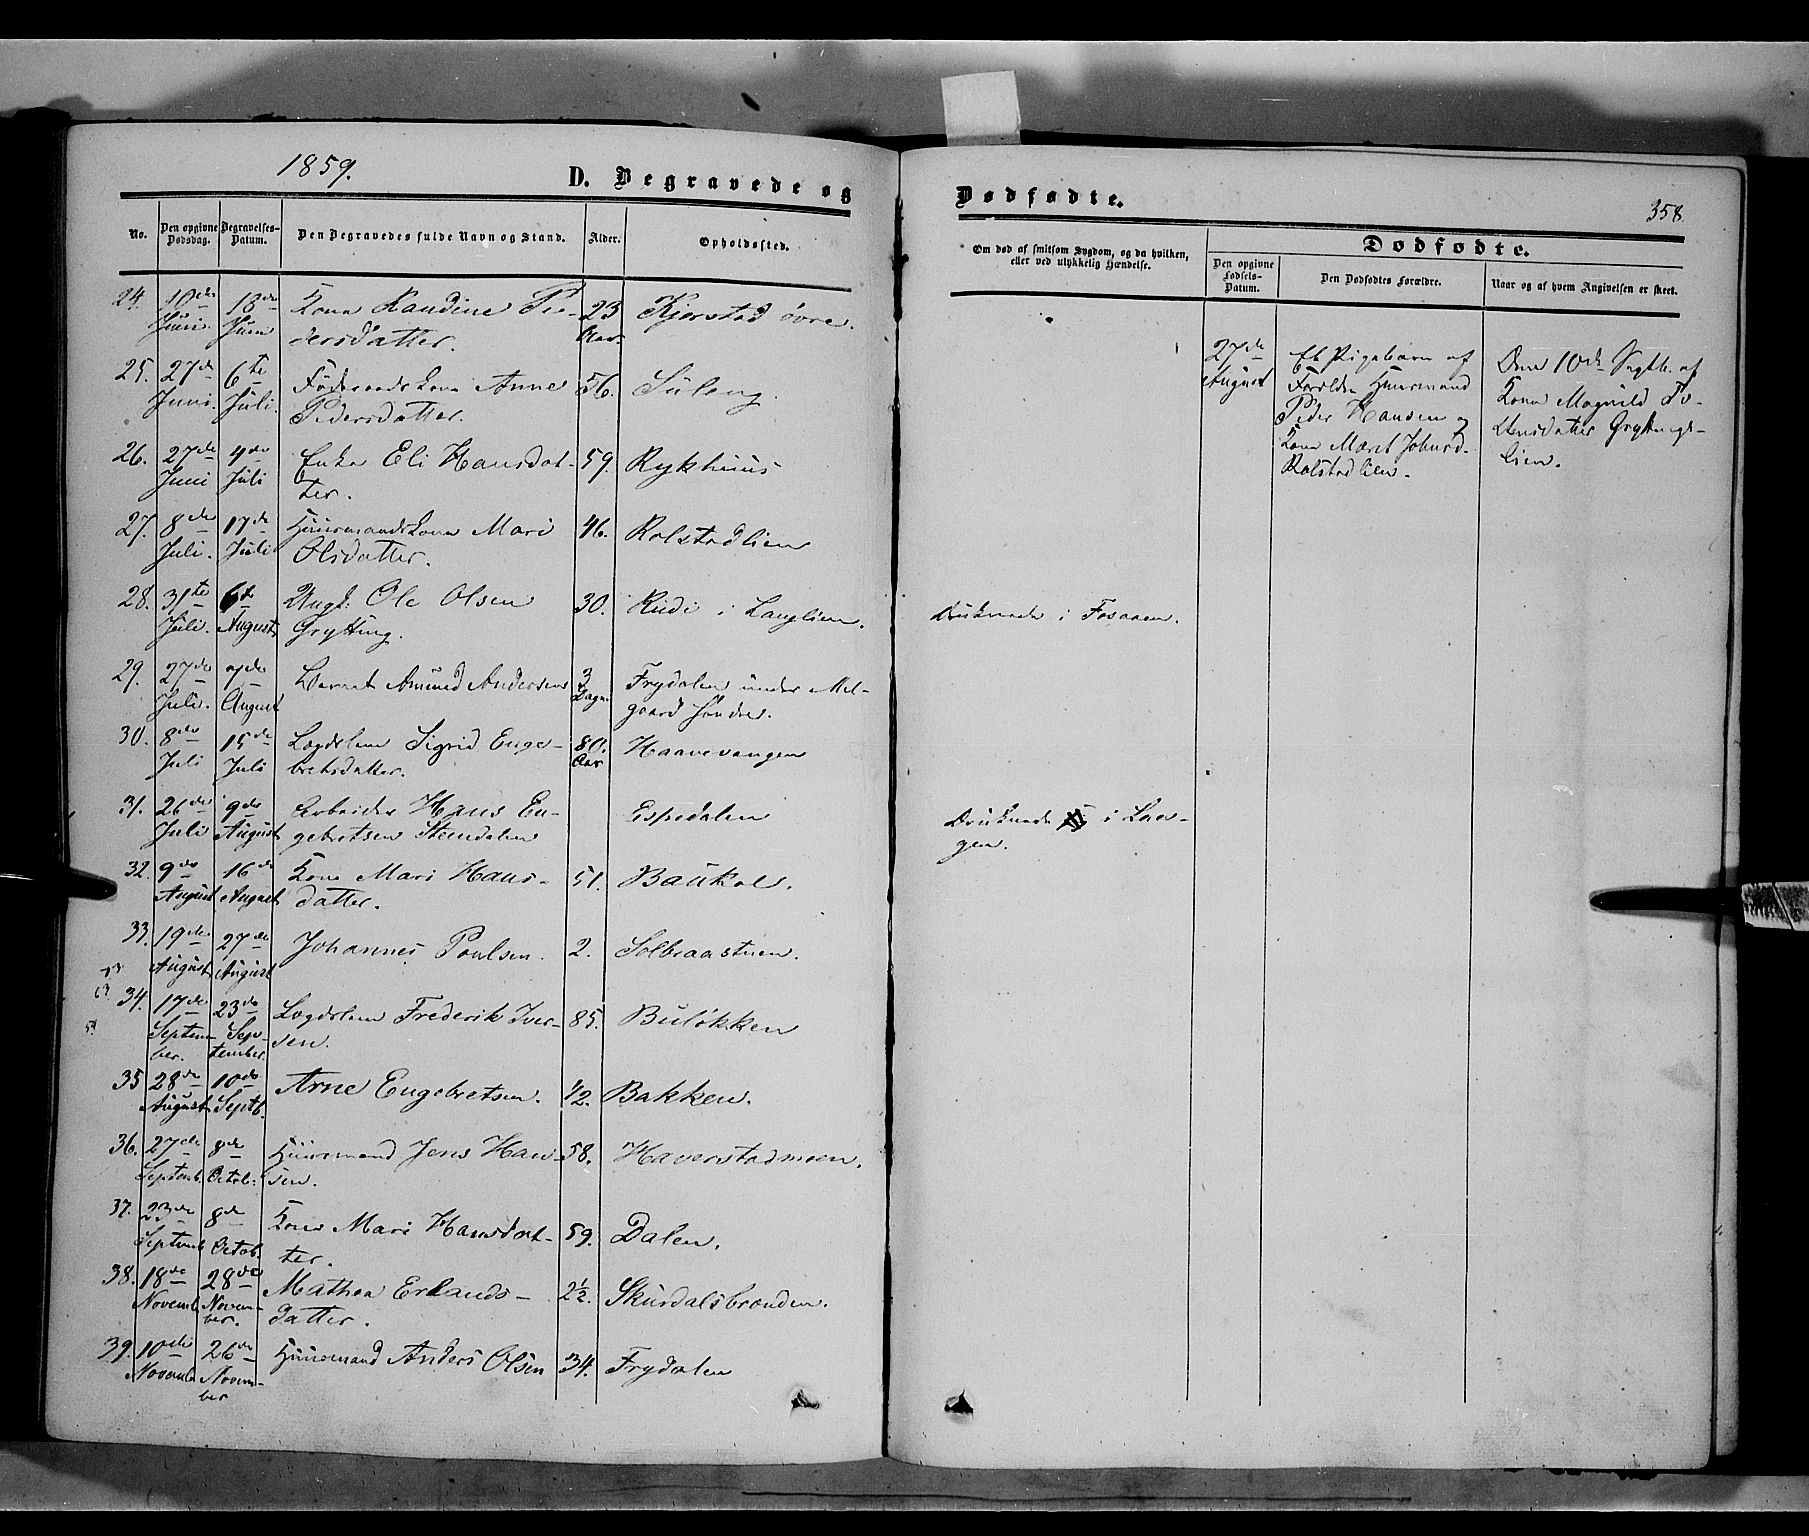 1859.
D. Begravede og
No.
Den opgivne Dødsdag.
Begravelses-Datum.
Den Begravedes fulde Navn og Stand.
Alder.
Opholdssted.
24. 10de Juni. 18de Juni Kona Randine Pe-
dersdatter. 23 Aar. Kjorstad øvre.
25. 27de Juni. 6te Juli. Föderaadskona Anne
Pedersdatter. 56. Suleng.
26. 27de Juni 4de Juli Enke Eli Hansdat-
ter. 59. Rykhuus
27. 8de Juli. 17de Juli Huusmandskona Mari
Olsdatter. 46. Rolstadlien
28. 31te Juli. 6te August Ungk: Ole Olsen
Grytting. 30. Rudi i Langlien.
29. 27de Juli. 7de August Barnet Amund Andersen 3 Dage. Frydalen under Mel-
gaard søndre.
30. 8de Juli 15de Juli Lægdslem Sigrid Enge-
bretsdatter. 80. Aar Haavevangen
31. 26de Juli 9de August Arbeider Hans En-
gebretsen Steindalen Espedalen
32. 9de August 16de August Kone Mari Hans-
datter. 51. Baukol.
33. 19de August 27de August Johannes Poulsen. 2. Solbraastuen.
34. 17de Septem-
ber. 23de Sep-
tember. Lægdslem Frederik Iver-
sen. 85. Buløkken
35 28de August 10de Septb. Arne Engebretsen. 1/2. Bakken.
36. 27de Septemb. 8de Octob. Huusmand Jens Han-
sen. 58. Haverstadmoen.
37. 23de Septemb 8de Octob. Kone Mari Hansdat-
ter. 59. Dalen.
38. 18de Novemb 28de Novem-
ber. Mathea Erlands-
datter. 2 1/2. Skurdalsbrænden.
39. 10de Novemb 26de Novem-
ber Huusmand Anders Olsen 34. Frydalen
Dødfødte.
358
Om død af smitsom Sygdom, og da hvilken,
eller ved ulykkelig Hændelse.
Dødfødte.
Den opgivne
Fødsels-
Datum.
Den Dødfødtes Forældre.
Naar og af hvem Angivelsen er skeet.
27de
August
Et Pigebarn af
Foreldre Huusmand
Peder Hansen og
Kone Marit Johnsd.
Rolstadlien.
Den 10de Septb. af
Kona Magnild To-
stensdatter Gryttings-
lien.
Druknede i Fosaaen.
Druknede i Laa-
gen.